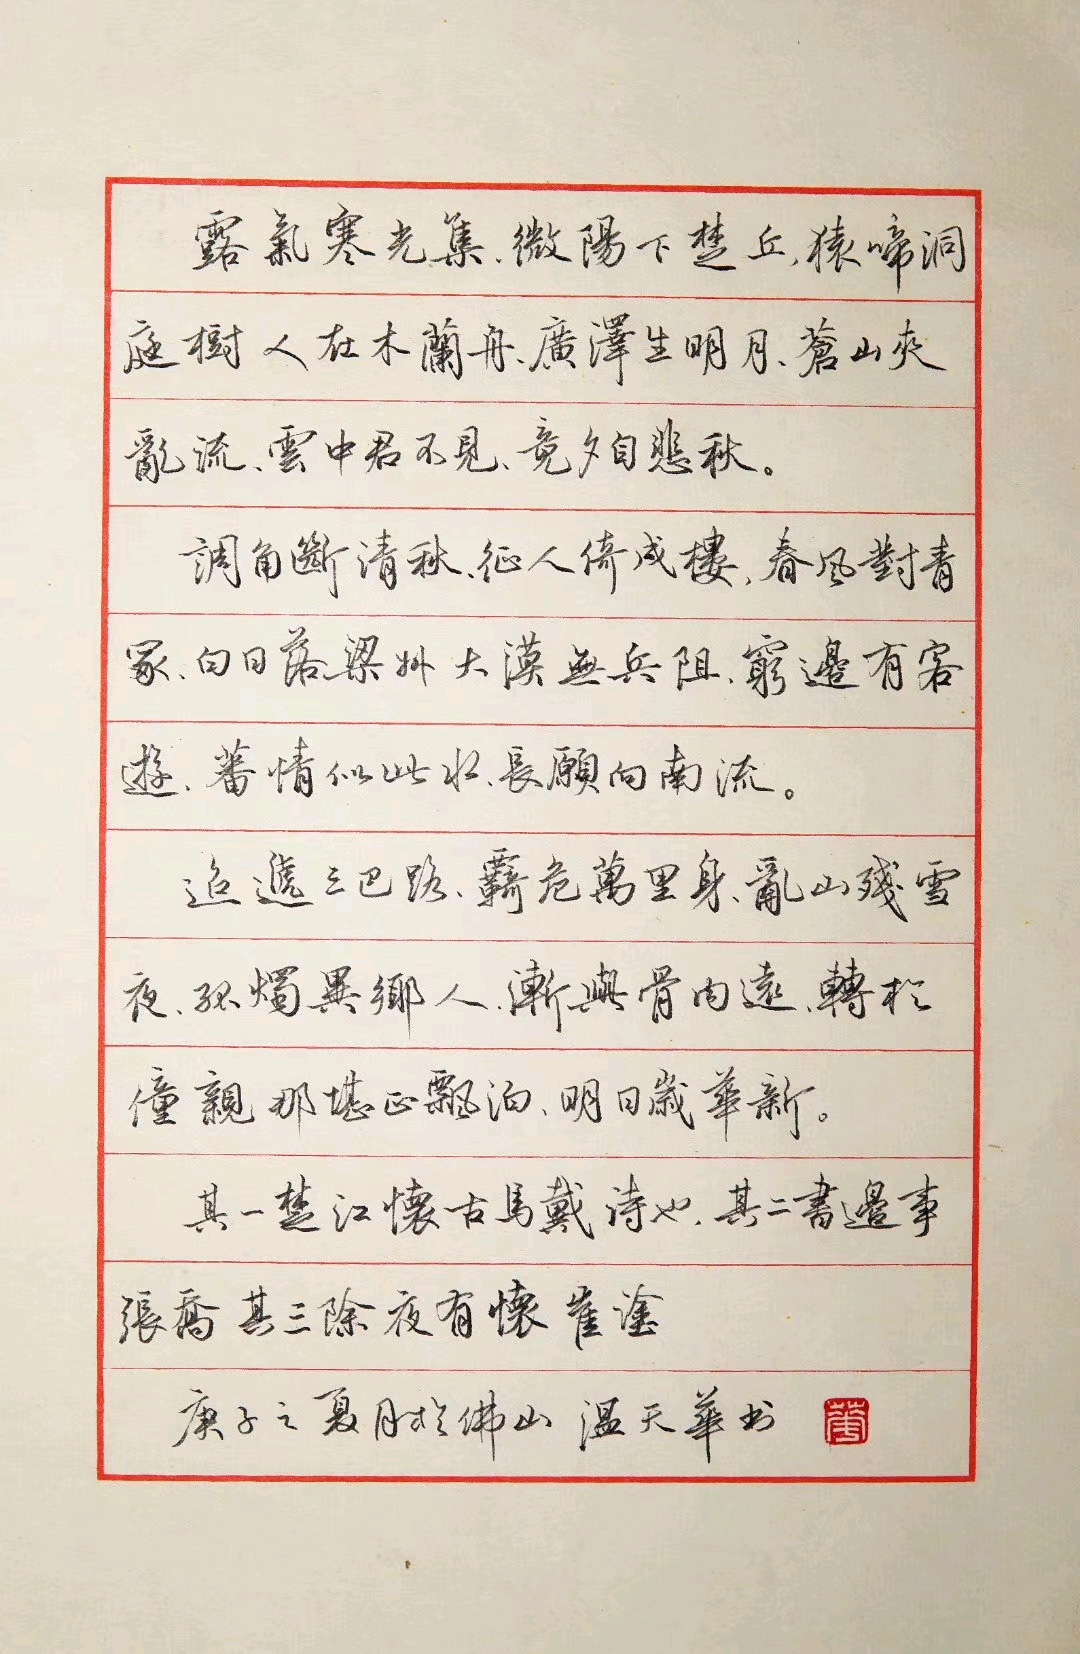 露氣寒光集、微陽下楚丘、猿啼洞
庭樹人在木蘭舟、廣澤生明月、蒼山夾
亂流、雲中君不見、竟夕自悲秋。
調角斷清秋、征人倚戍樓、春風對青
冢、白日落梁州大漠無兵阻、窮邊有客
遊、蕃情似此水、長願向南流。
迢遞三巴路、羈危萬里身、亂山殘雪
夜、孤燭異鄉人、漸與骨肉遠、轉於
僮親那堪正飄泊、明日歲華新。
其一楚江懷古馬戴詩也、其二書邊事
張喬其三除夜有懷崔塗
庚子之夏月於佛山 溫天華书
華